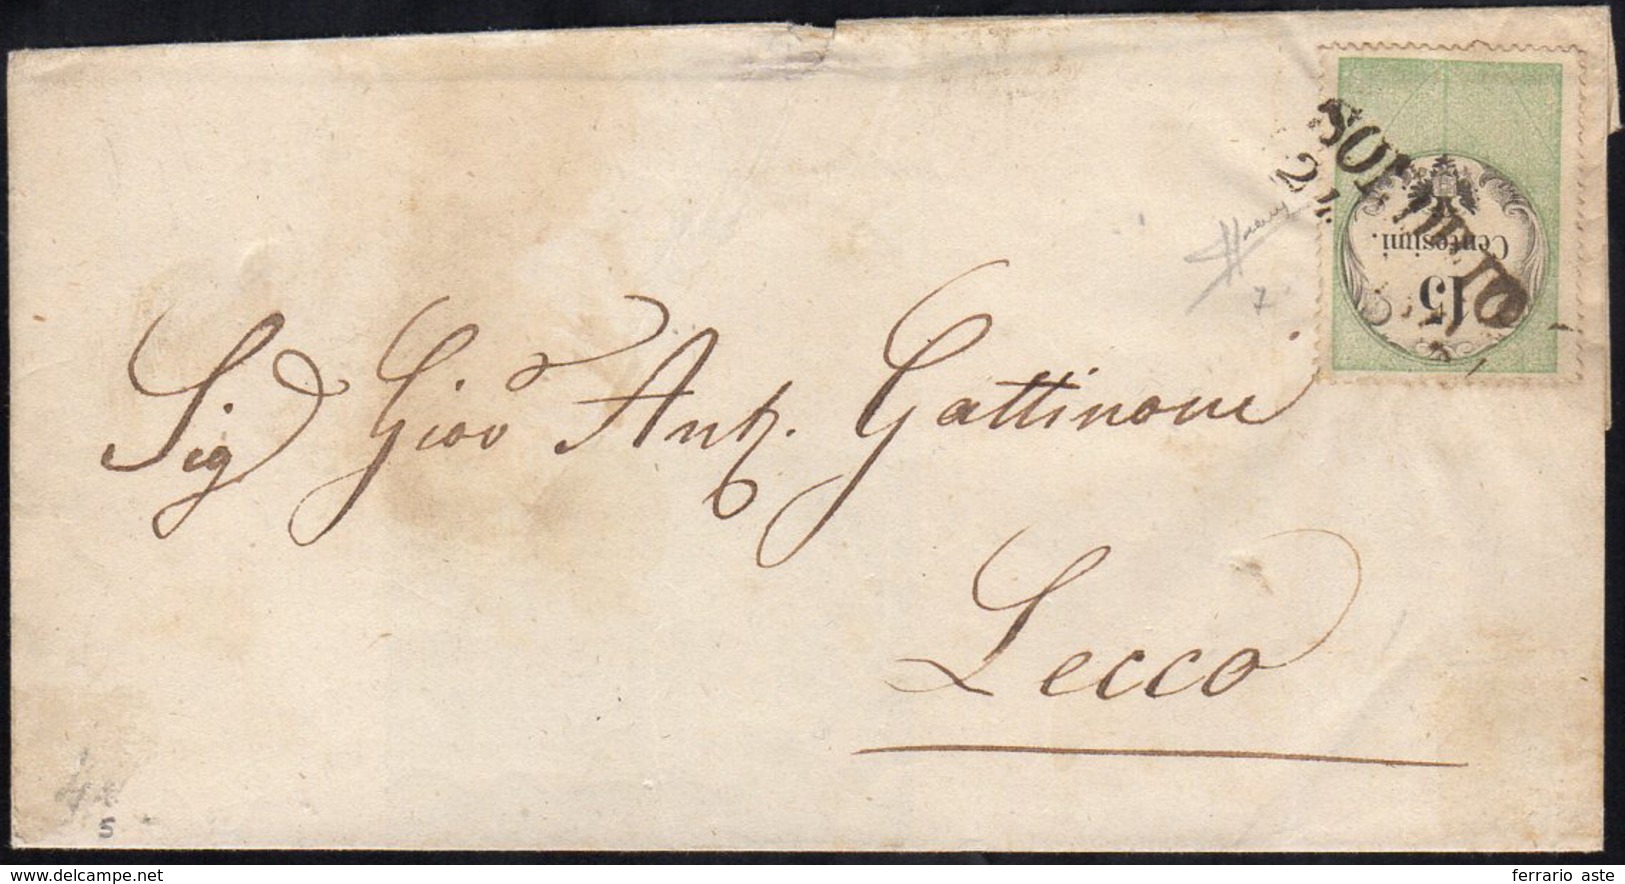 SONDRIO
Centesimi.
15
7
Sig Giov Ant. Gattinoni
Lecco
5
delcampe.net
ferrario aste